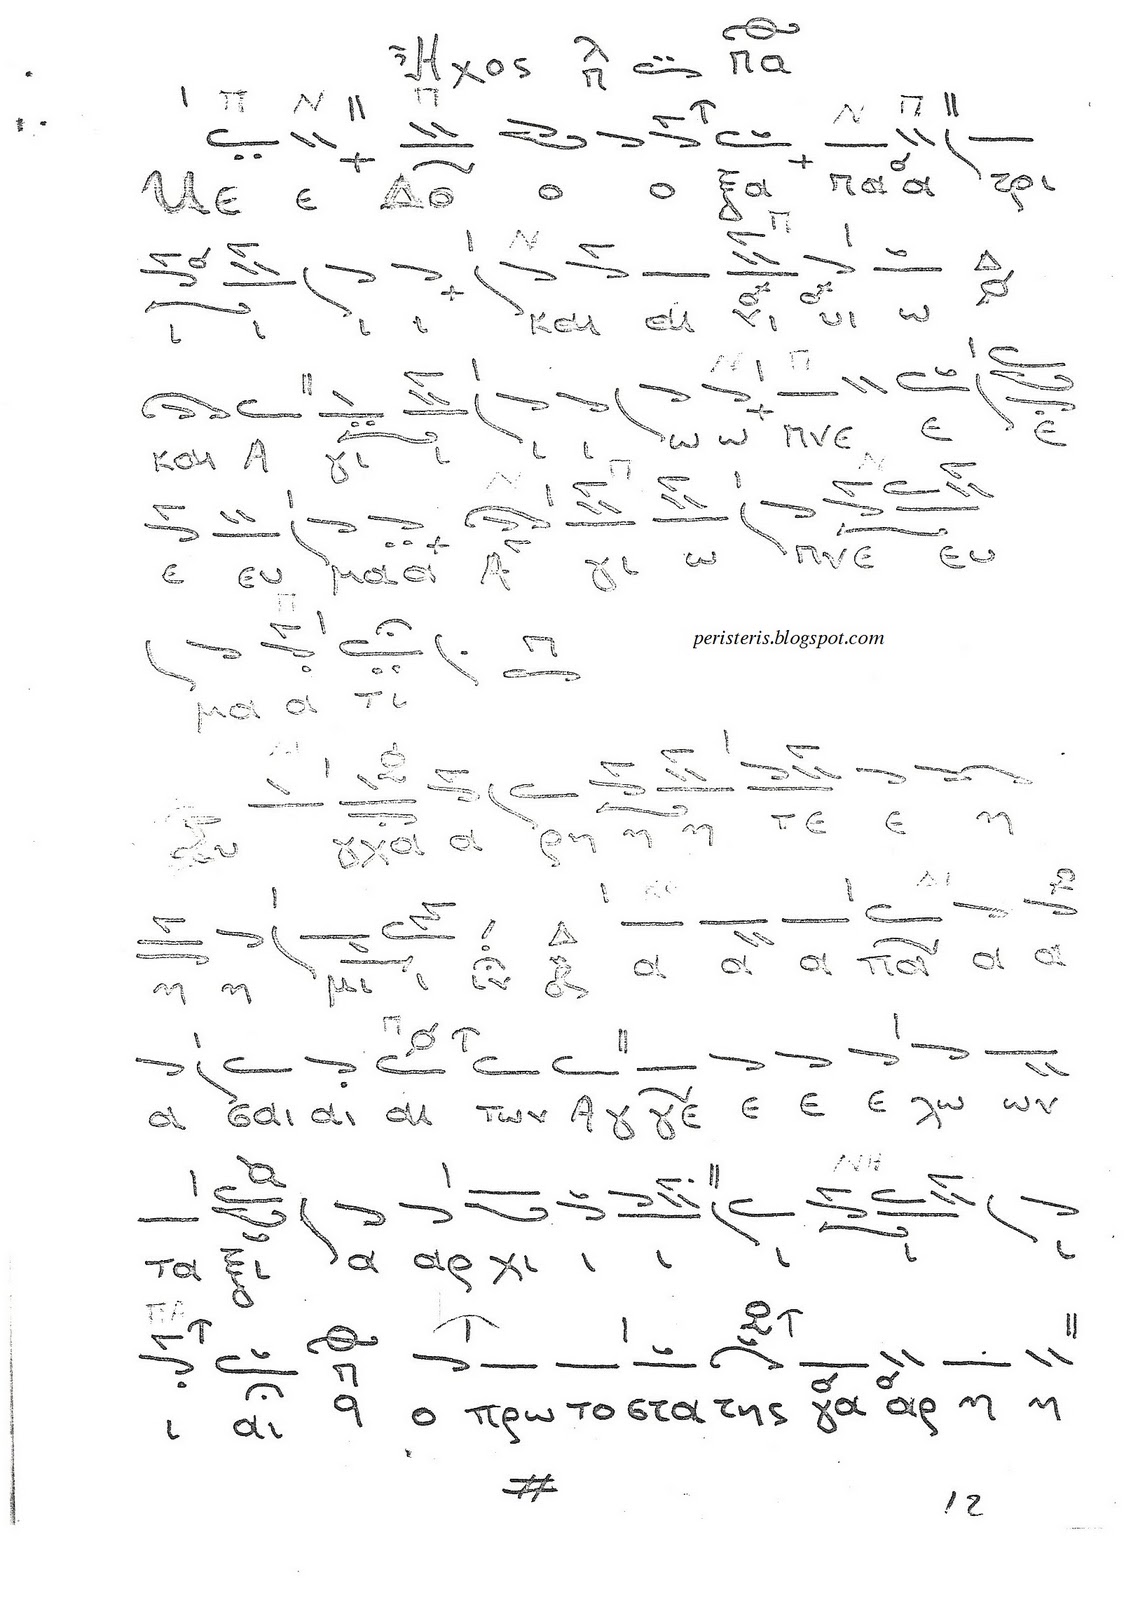 Ήχος λ π πα
Με ε Δο ο ο ξα πα α τρι
ι ι ι ι και αι υι υι ω Δ
και Α γι ι ι ι ω ω πνε ε ε
ε ευ μα α Α γι ω πνε ευ
peristeris.blogspot.com
μα α τι π
Συ γχα α ρη η η τε ε η
η η μι ι Δ α α α πα α α
α σαι αι αι των Α γ γε ε ε ε λω ων
τα ξι α αρ χι ι ι ι ι ι
ι αι π q ο πρω το στα της γα αρ η η
12